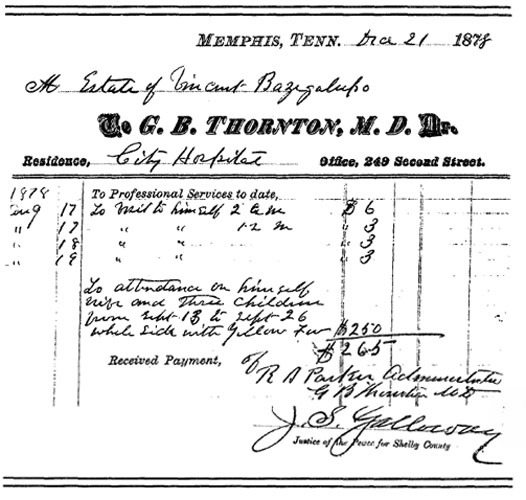 MEMPHIS, TENN. Dec 21 1878
M Estate of Vincent Bazigalupo
To G. B. THORNTON, M. D. Dr.
Residence, City Hospital Office, 249 Second Street.
1878 To Professional Services to date,
Aug 17 To Visit to himself 2 a m $6
" 17 " " 12 m " 3
" 18 " " " 3
" 19 " " " 3
To attendance on himself
wife and three children
from Sept 13 to Sept 26
while Sick with Yellow Fever $250
$265
Received Payment, of
R A Parker Administrator
G B Thornton M D
J. S. Galloway
Justice of the Peace for Shelby County